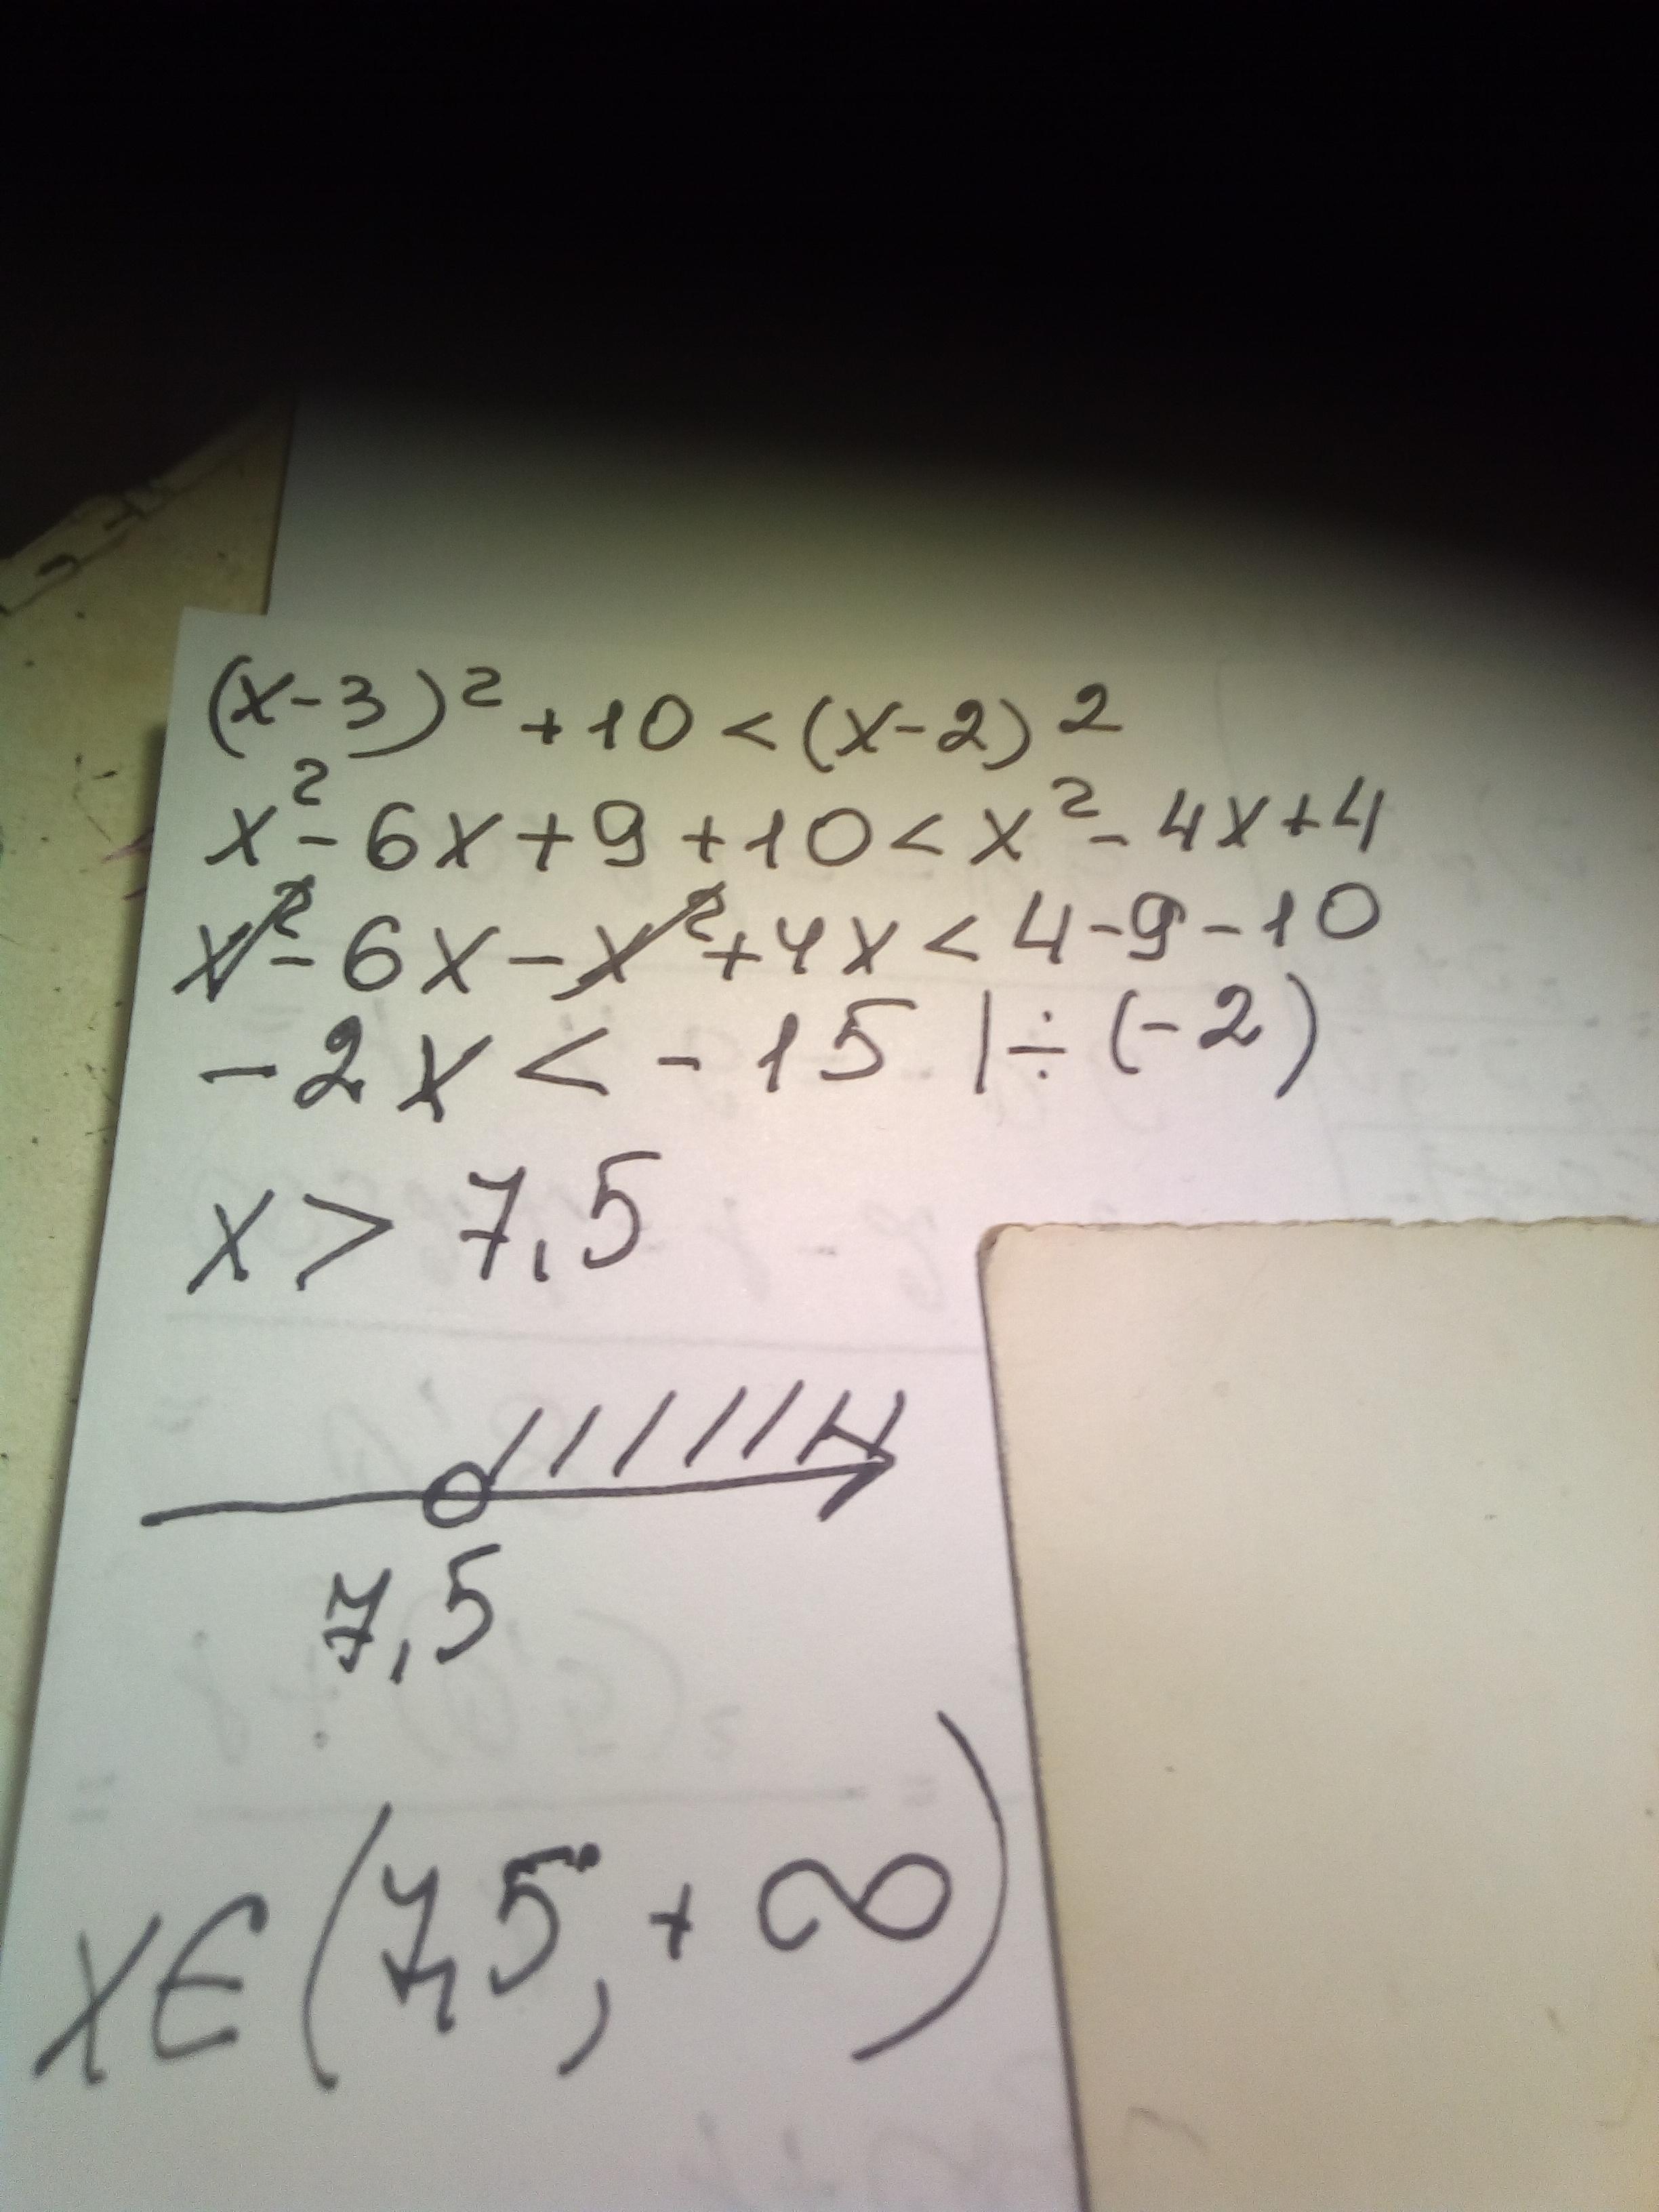 (x-3)² +10 < (x-2)²
x² - 6x + 9 + 10 < x² - 4x + 4
x² - 6x - x² + 4x < 4 - 9 - 10
-2x < -15 | ÷ (-2)
x > 7,5
7,5
x ∈ (7,5; +∞)